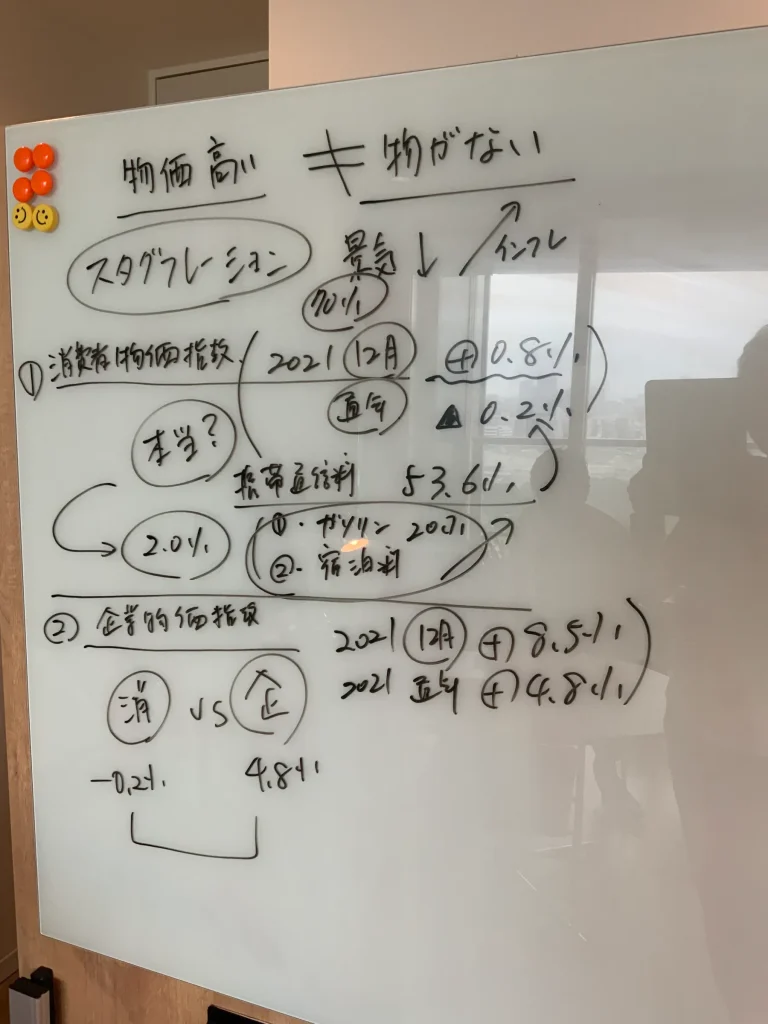 物価高い ≠ 物がない
スタグフレーション 景気↓ ↗インフレ
70%
① 消費者物価指数 2021 12月 ⊕0.8%
本当? 通年 ▲0.2%
携帯通信料 53.6%
2.0% ①・ガソリン 20%
②・宿泊料
② 企業物価指数
2021 12月 ⊕8.5%
2021 通年 ⊕4.8%
消 vs 企
-0.2% 4.8%